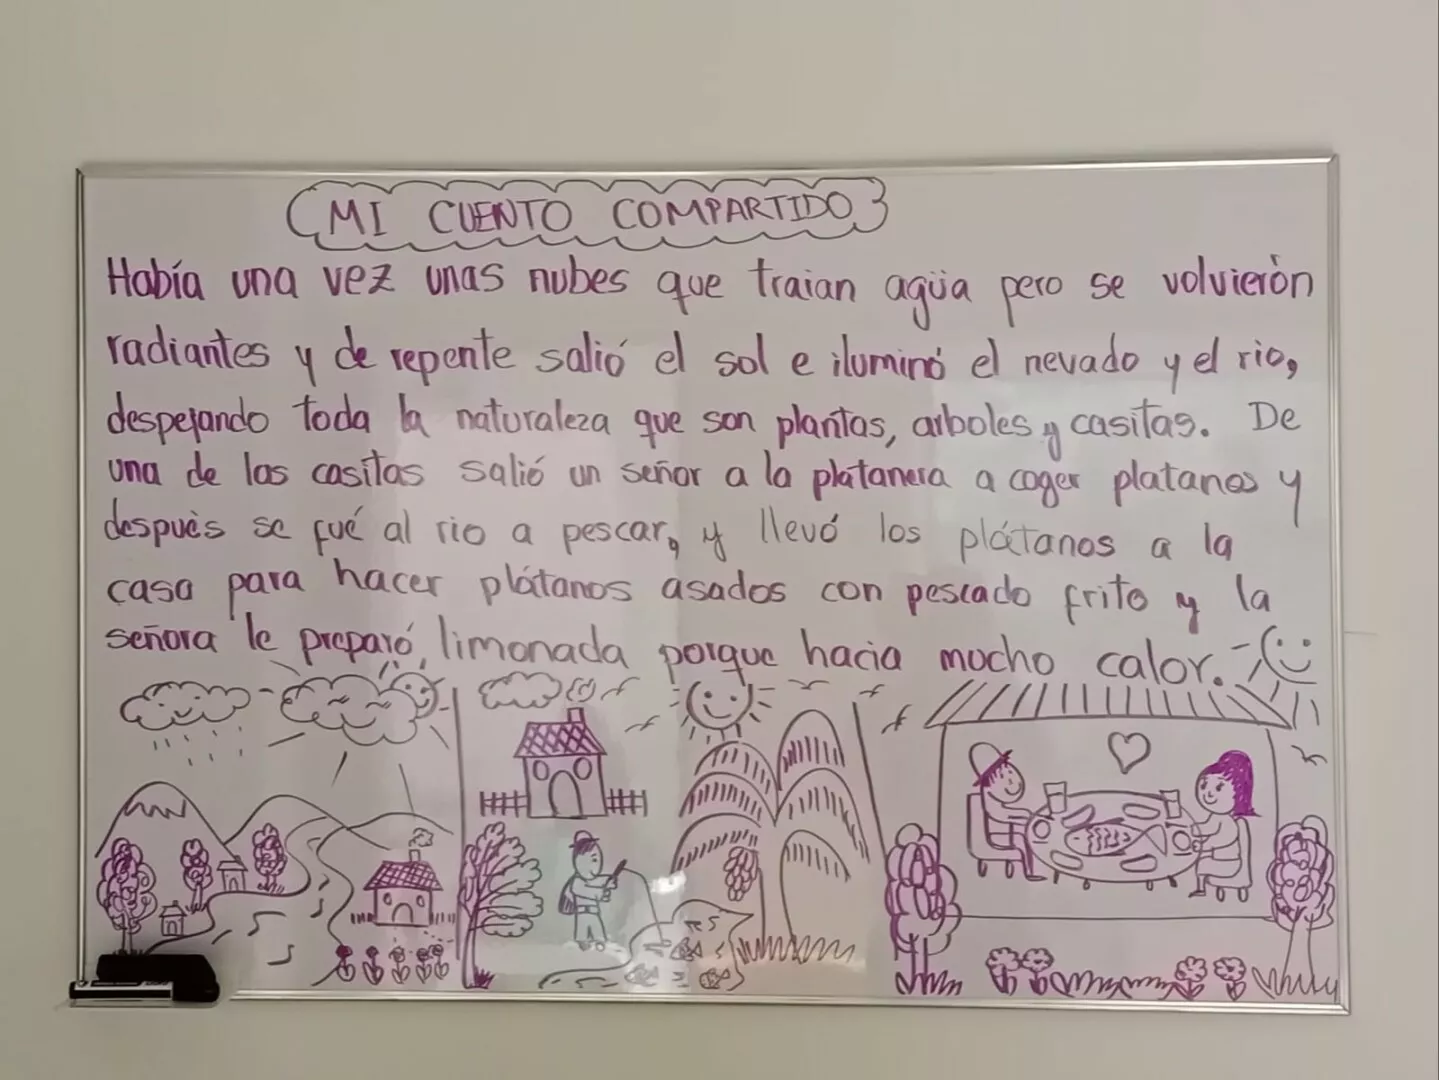 MI CUENTO COMPARTIDO
Había una vez unas nubes que traian agüa pero se volvierón
radiantes y de repente salió el sol e iluminó el nevado y el rio,
despejando toda la naturaleza que son plantas, arboles y casitas. De
una de las casitas salió un señor a la platanera a coger platanos y
después se fué al rio a pescar, y llevó los plátanos a la
casa para hacer plátanos asados con pescado frito y la
señora le preparó limonada porque hacia mucho calor.